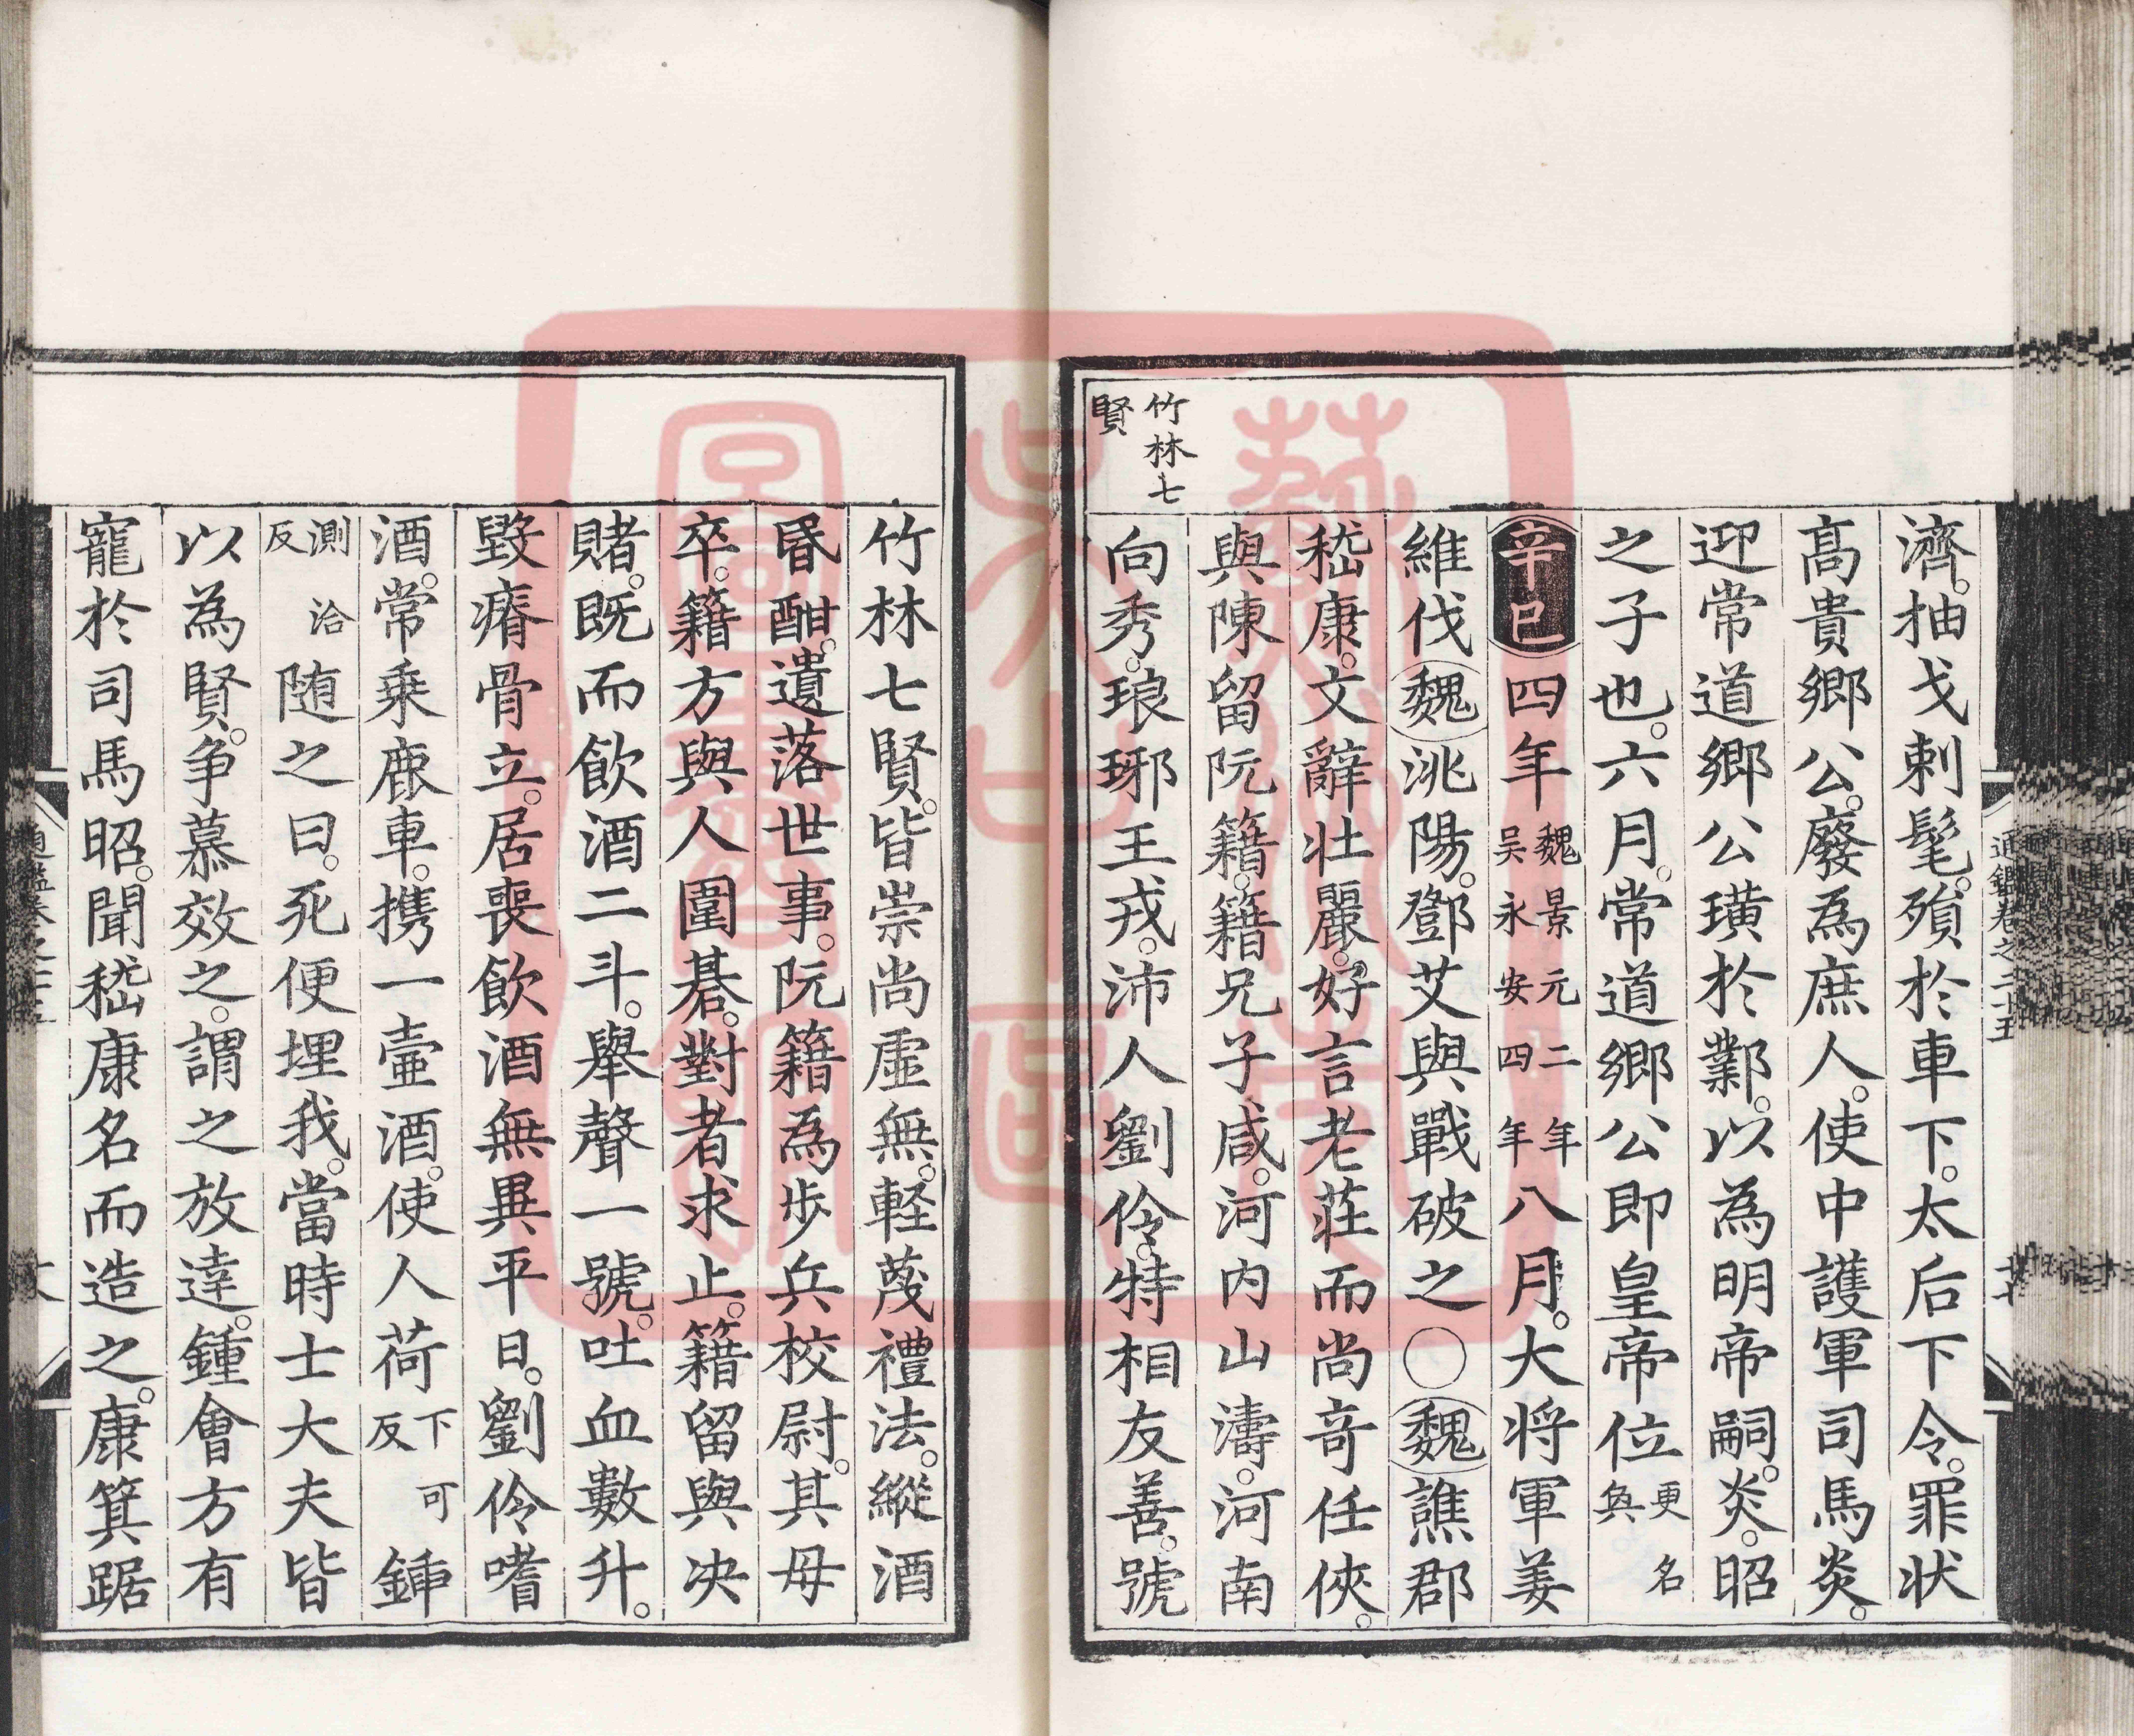 濟。抽戈刺髦。殞於車下。太后下令。罪状
高貴鄉公。廢為庶人。使中護軍司馬炎。
迎常道鄉公璜於鄴。以為明帝嗣。炎。昭
之子也。六月。常道鄉公即皇帝位更名奐
辛巳四年魏景元二年吴永安四年八月。大将軍姜
維伐魏洮陽。鄧艾與戰破之〇魏譙郡
嵇康。文辭壮麗。好言老莊而尚奇任俠。
與陳留阮籍。籍兄子咸。河内山濤。河南
向秀。琅琊王戎。沛人劉伶。特相友善。號
竹林七賢
竹林七賢。皆崇尚虚無。軽蔑禮法。縱酒
昏酣。遺落世事。阮籍為歩兵校尉。其母
卒。籍方與人圍碁。對者求止。籍留與决
賭。既而飲酒二斗。舉聲一號。吐血數升。
毀瘠骨立。居喪飲酒無異平日。劉伶嗜
酒。常乗鹿車。携一壷酒。使人荷下可反鍤
測洽反随之曰。死便埋我。當時士大夫皆
以為賢。争慕效之。謂之放達。鍾會方有
寵於司馬昭。聞嵇康名而造之。康箕踞
通鑑卷之二十五